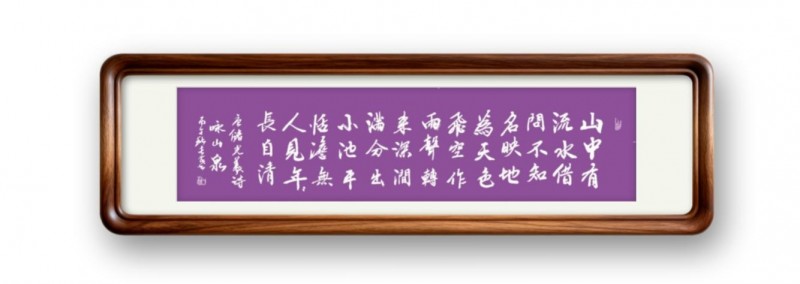 山中有
流水借
問不知
名映地
為天色
飛空作
雨聲轉
来深澗
滿分出
小池平
恬澹無
人見年々
長自清
唐儲光羲詩
咏山泉